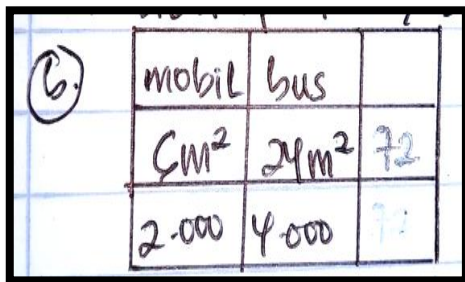 6.
mobil bus
24m² 72
2.000 4.000